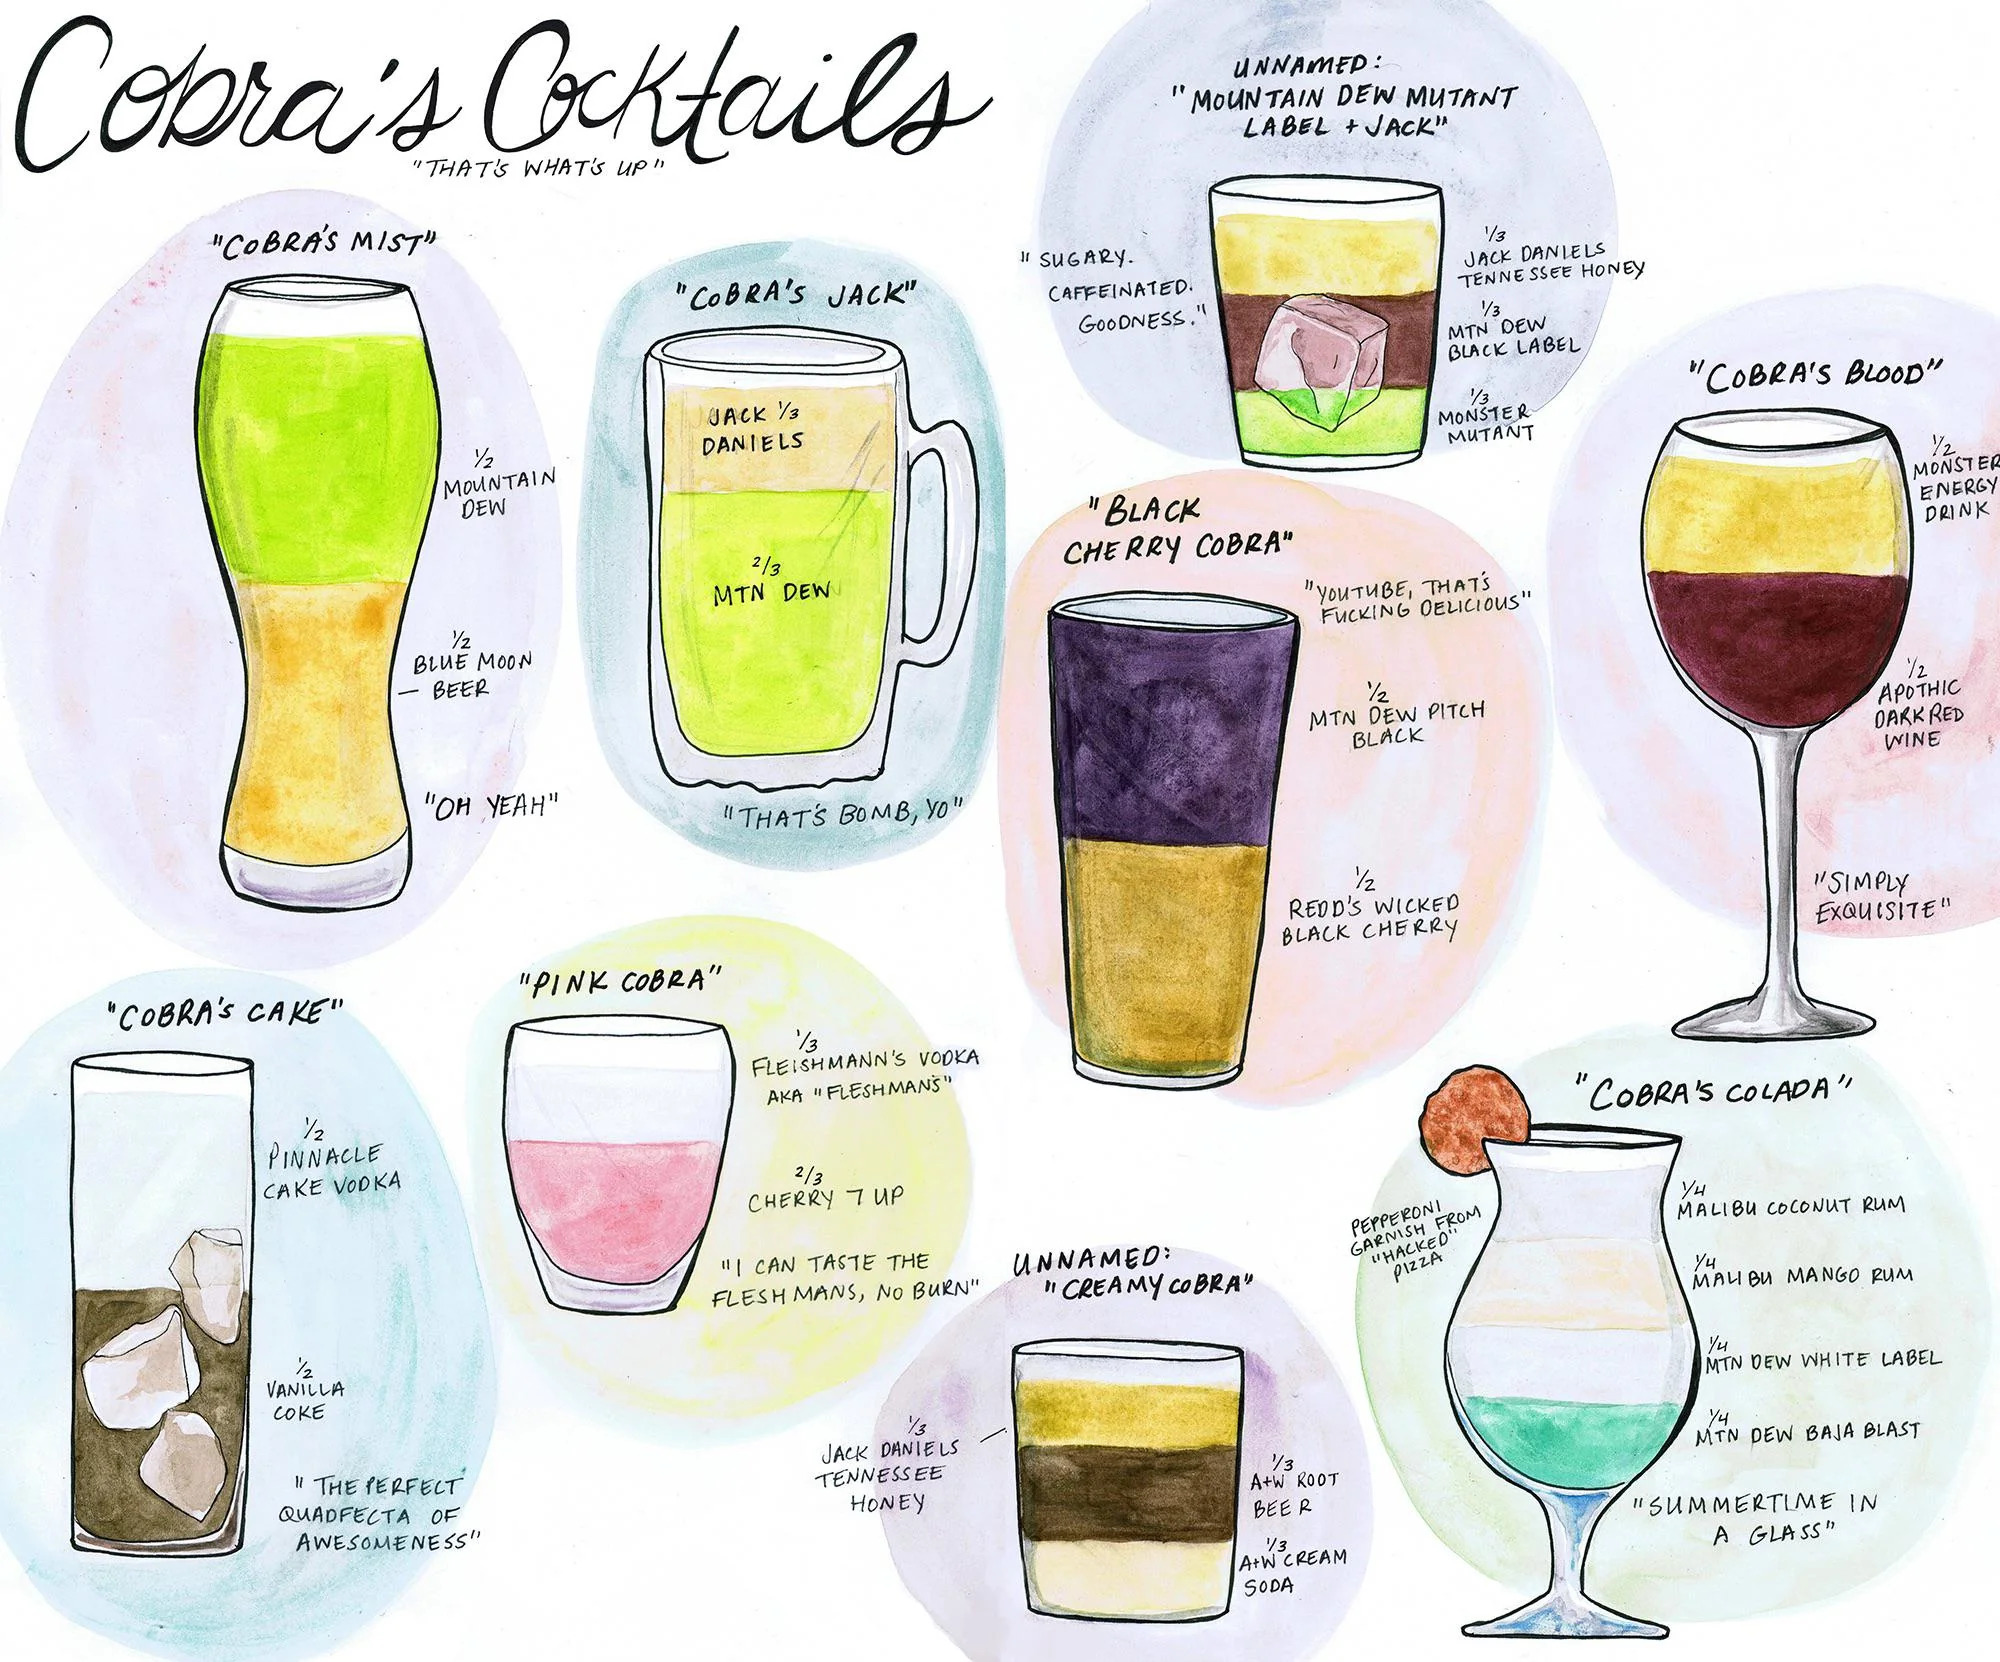 Cobra's Cocktails
"THAT'S WHAT'S UP"
"COBRA'S MIST"
1/2
MOUNTAIN
DEW
1/2
BLUE MOON
— BEER
"OH YEAH"
"COBRA'S JACK"
JACK 1/3
DANIELS
2/3
MTN DEW
"THAT'S BOMB, YO"
UNNAMED:
"MOUNTAIN DEW MUTANT
LABEL + JACK"
"SUGARY.
CAFFEINATED.
GOODNESS."
1/3
JACK DANIELS
TENNESSEE HONEY
1/3
MTN DEW
BLACK LABEL
1/3
MONSTER
MUTANT
"BLACK
CHERRY COBRA"
"YOUTUBE, THAT'S
FUCKING DELICIOUS"
1/2
MTN DEW PITCH
BLACK
1/2
REDD'S WICKED
BLACK CHERRY
"COBRA'S BLOOD"
1/2
MONSTER
ENERGY
DRINK
1/2
APOTHIC
DARK RED
WINE
"SIMPLY
EXQUISITE"
"COBRA'S CAKE"
1/2
PINNACLE
CAKE VODKA
1/2
VANILLA
COKE
"THE PERFECT
QUADFECTA OF
AWESOMENESS"
"PINK COBRA"
1/3
FLEISHMANN'S VODKA
AKA "FLESHMAN'S"
2/3
CHERRY 7 UP
"I CAN TASTE THE
FLESHMANS, NO BURN"
UNNAMED:
"CREAMY COBRA"
1/3
JACK DANIELS
TENNESSEE
HONEY
1/3
A+W ROOT
BEER
1/3
A+W CREAM
SODA
"COBRA'S COLADA"
PEPPERONI
GARNISH FROM
"HACKED"
PIZZA
1/4
MALIBU COCONUT RUM
1/4
MALIBU MANGO RUM
1/4
MTN DEW WHITE LABEL
1/4
MTN DEW BAJA BLAST
"SUMMERTIME IN
A GLASS"